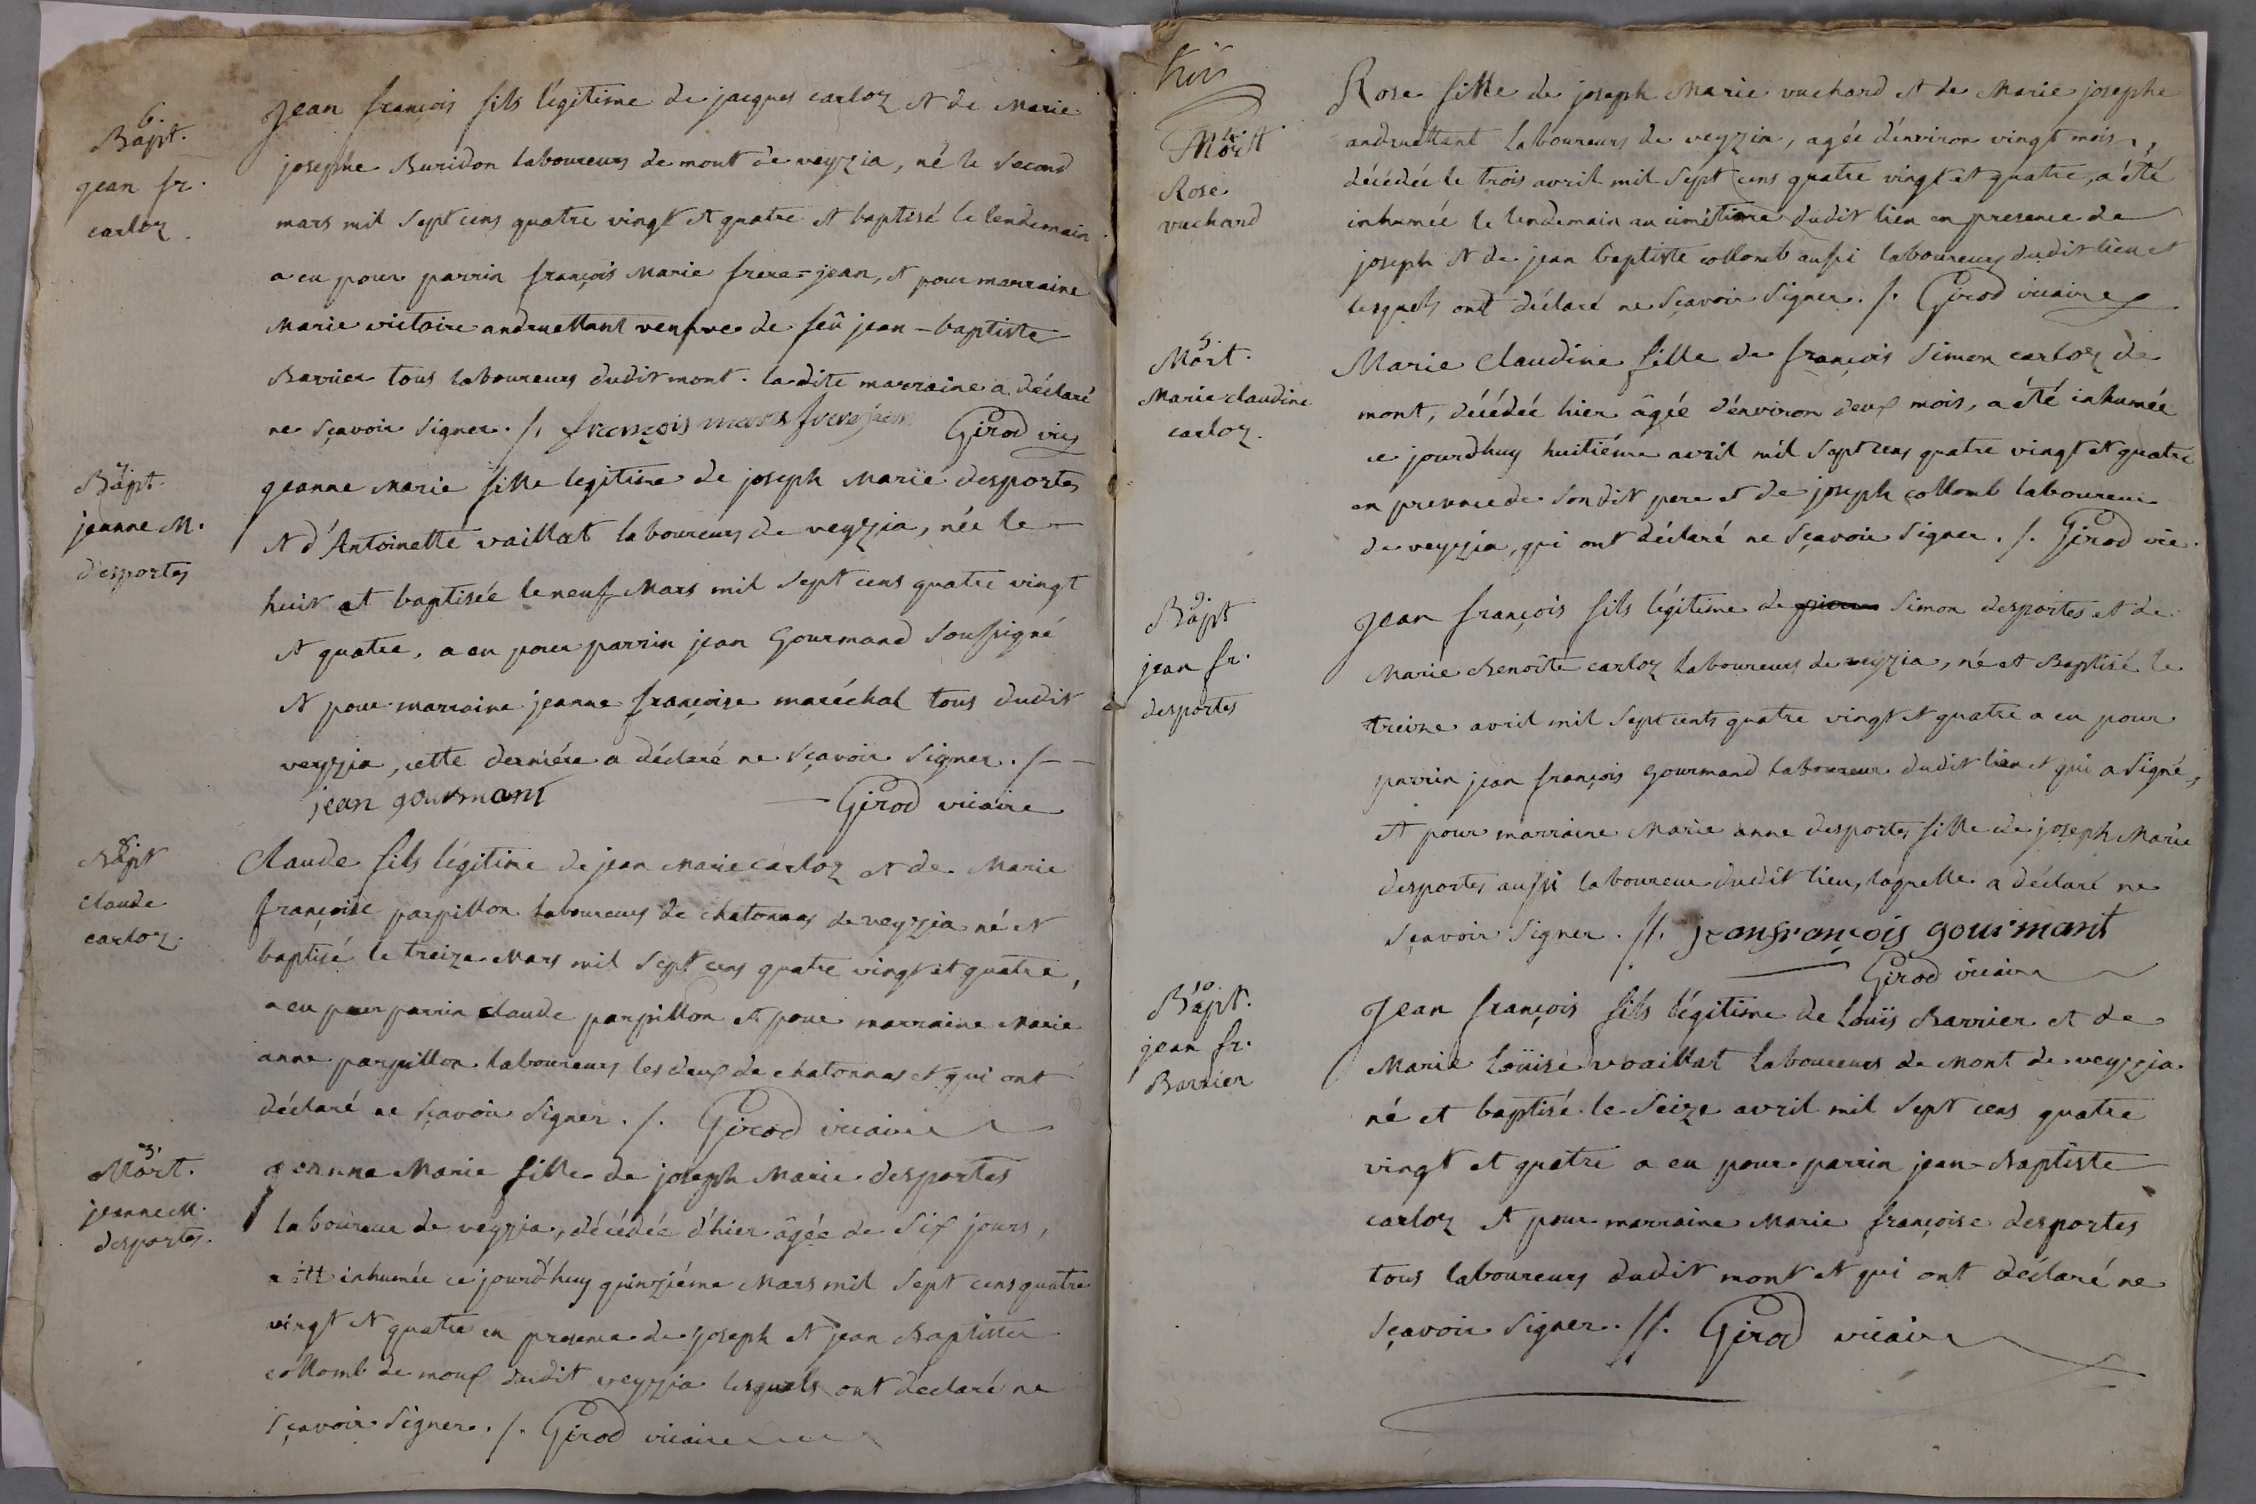 6.
Bapt.
jean fr.
carloz.
Jean françois fils légitime de jacques carloz et de Marie
josephe Buridon laboureurs de mont de veyzia, né le second
mars mil sept cens quatre vingt et quatre et baptisé le lendemain
a eu pour parrin françois Marie frere=jean, et pour marraine
Marie victoire andruettant veufve de feû jean-baptiste
Barrier tous laboureurs dudit mont. la dite marraine a déclaré
ne sçavoir signer. /. françois marie frerejean Girod vic
7
Bapt.
jeanne M.
desportes
jeanne Marie fille legitime de joseph Marie desportes
et d'Antoinette vaillat laboureurs de veyzia, née le
huit et baptisée le neuf Mars mil sept cens quatre vingt
et quatre, a eu pour parrin jean Gourmand soussigné
et pour marraine jeanne françoise maréchal tous dudit
veyzia, cette derniére a déclaré ne sçavoir signer. /-
jean gourmant Girod vicaire
8
Bapt
Claude
carloz.
Claude fils légitime de jean Marie carloz et de Marie
françoise parpillon laboureurs de chatonnas de veyzia né et
baptisé le treize Mars mil sept cens quatre vingt et quatre,
a eu pour parrin claude parpillon et pour marraine Marie
anne parpillon laboureurs les deux de chatonnas et qui ont
déclaré ne sçavoir signer. /. Girod vicaire
3.
Mort.
jeanne M.
desportes.
jeanne Marie fille de joseph Marie desportes
laboureur de veyzia, décédée d'hier âgée de six jours,
a été inhumée ce jourd'huy quinziéme Mars mil sept cens quatre
vingt et quatre en presence de joseph et jean Baptiste
collomb de moux dudit veyzia lesquels ont déclaré ne
sçavoir signer. /. Girod vicaire
4.
Mort
Rose
vuchard
Rose fille de joseph Marie vuchard et de Marie josephe
andruettant laboureurs de veyzia, agée d'environ vingt mois,
décédée le trois avril mil sept cens quatre vingt et quatre, a été
inhumée le lendemain au cimétiere dudit lieu en presence de
joseph et de jean baptiste collomb aussi laboureurs dudit lieu et
lesquels ont déclaré ne sçavoir signer. /. Girod vicaire
5.
Mort.
Marie claudine
carloz.
Marie Claudine fille de françois simon carloz de
mont, décédée hier âgée d'environ deux mois, a été inhumée
ce jourd'huy huitiéme avril mil sept cens quatre vingt et quatre
en presence de son dit pere et de joseph collomb laboureur
de veyzia, qui ont déclaré ne sçavoir signer. /. Girod vic.
9
Bapt
jean fr.
desportes
Jean françois fils légitime de simon desportes et de
Marie Benoîte carloz laboureurs de veyzia, né et Baptisé le
treize avril mil sept cents quatre vingt et quatre a eu pour
parrin jean françois Gourmand laboureur dudit lieu et qui a signé,
et pour marraine Marie anne desportes fille de joseph Marie
desportes aussi laboureur dudit lieu, laquelle a déclaré ne
sçavoir signer. //. jean françois gourmant
Girod vicaire
10
Bapt.
jean fr.
Barrier
Jean françois fils légitime de Louïs Barrier et de
Marie Louïse vaillat laboureurs de Mont de veyzia
né et baptisé le seize avril mil sept cens quatre
vingt et quatre a eu pour parrin jean-Baptiste
carloz et pour marraine Marie françoise desportes
tous laboureurs dudit mont et qui ont déclaré ne
sçavoir signer. //. Girod vicaire